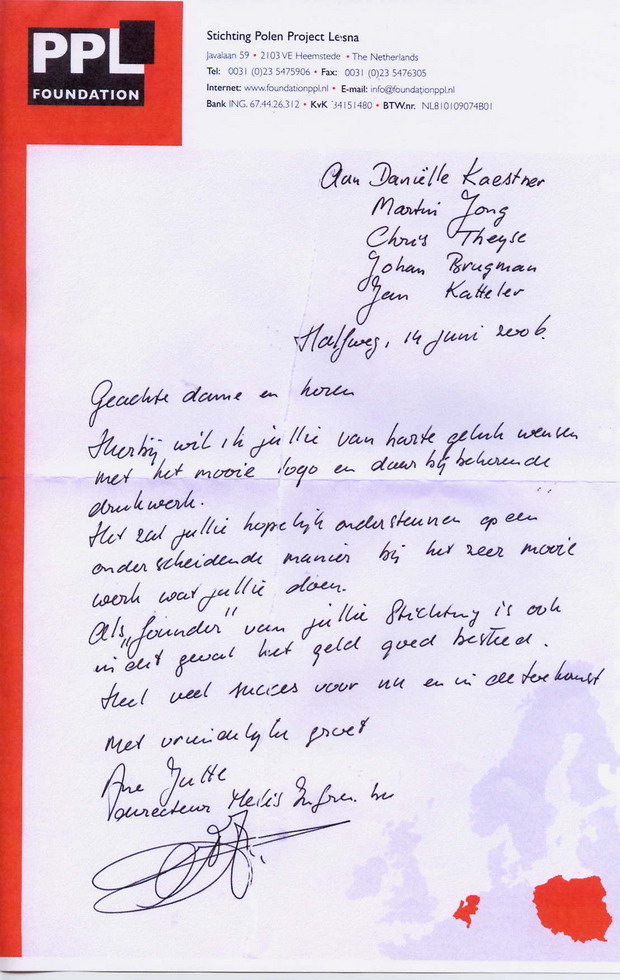 PPL
FOUNDATION
Stichting Polen Project Lesna
Javalaan 59 • 2103 VE Heemstede • The Netherlands
Tel: 0031 (0)23 5475906 • Fax: 0031 (0)23 5476305
Internet: www.foundationppl.nl • E-mail: info@foundationppl.nl
Bank ING. 67.44.26.312 • KvK 34151480 • BTW.nr. NL810109074B01
Aan Daniëlle Kaestner
Martin Jong
Chris Theyse
Johan Brugman
Jan Katteler
Halfweg, 14 juni 2006.
Geachte dame en heren
Hierbij wil ik jullie van harte geluk wensen
met het mooie logo en daar bij behorende
drukwerk.
Het zal jullie hopelijk ondersteunen op een
onderscheidende manier bij het zeer mooie
werk wat jullie doen.
Als „founder" van jullie Stichting is ook
in dit geval het geld goed besteed.
Heel veel succes voor nu en in de toekomst
Met vriendelijke groet
Jutte
Directeur